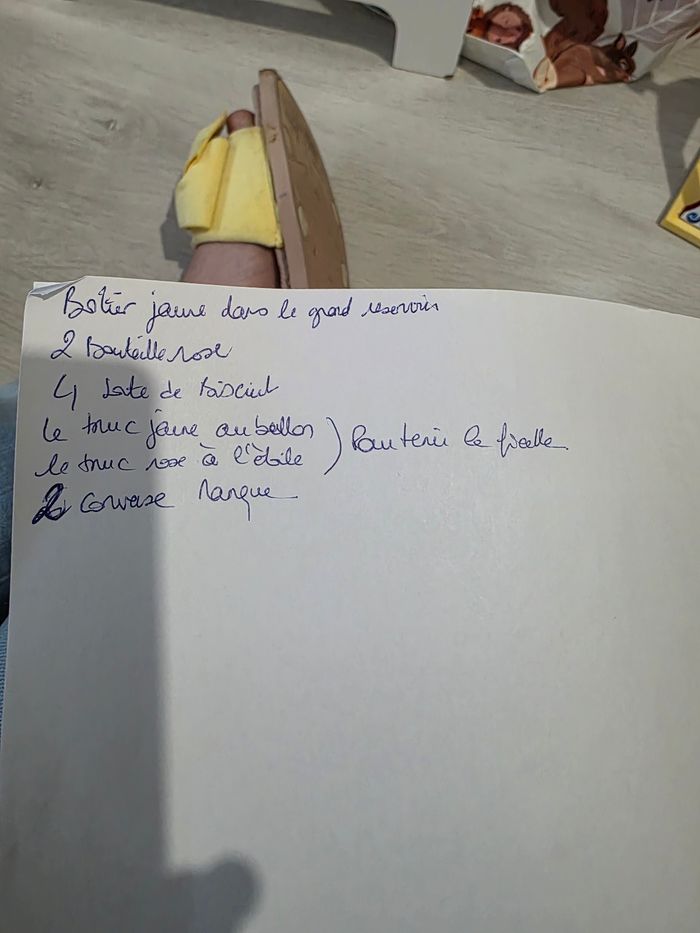 Boîtier jaune dans le grand reservoir
2 Bouteille rose
4 boite de Biscuit
le truc jaune au ballon
le truc rose à l'étoile ) Pour tenir la ficelle
2 converse